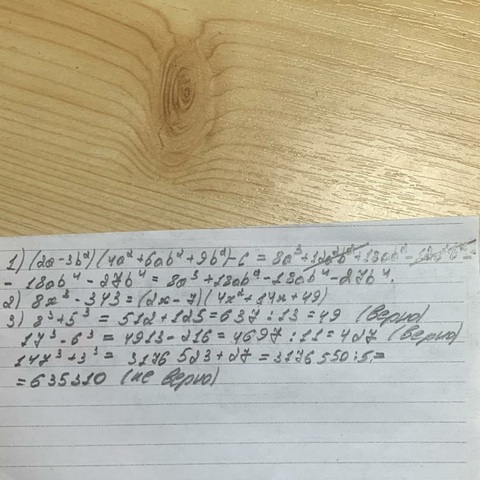 1) (2a-3b²)(4a²+6ab²+9b²)-6 = 8a³+12a²b²+18ab²-12a²b²-
- 18ab⁴ - 27b⁴ = 8a³+18ab²-18ab⁴-27b⁴.
2) 8x³-343=(2x-7)(4x²+14x+49)
3) 8³+5³ = 512+125=637:13=49 (верно)
17³-6³ = 4913-216=4697:11=427 (верно)
147³+3³ = 3176523+27=3176550:5=
=635310 (не верно)